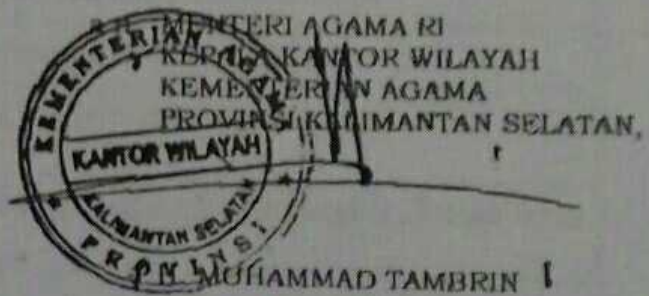 MENTERI AGAMA RI
KEPALA KANTOR WILAYAH
KEMENTERIAN AGAMA
PROVINSI KALIMANTAN SELATAN,
KEMENTERIAN AGAMA
KANTOR WILAYAH
KALIMANTAN SELATAN
PROVINSI
MUHAMMAD TAMBRIN